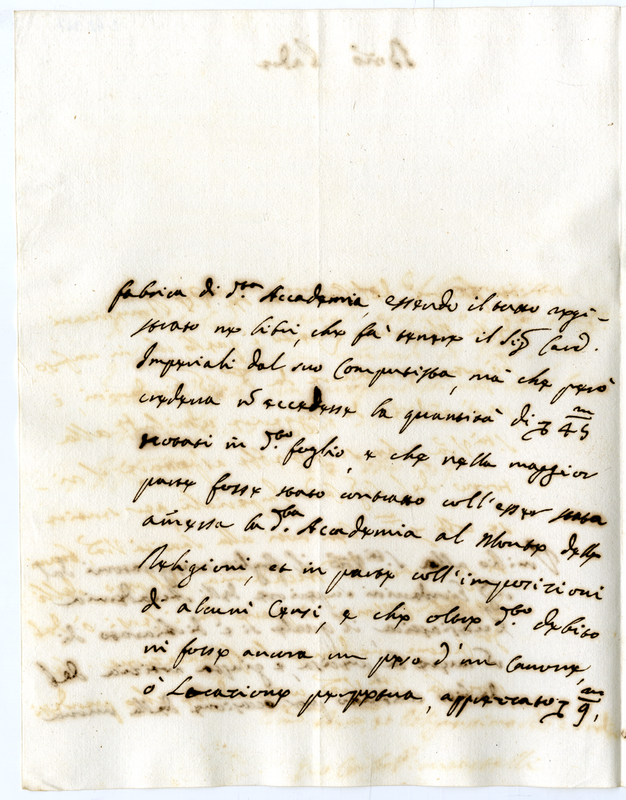 fabrica di d.ta Accademia, essendo il tutto regi-
strato ne libri, che fà tenere il Sig.r Card.
Imperiali dal suo Computista, mà che però
credeva nō eccedesse la quantità di 45
notati in d.to foglio, e che nella maggior
parte fosse stato contratto coll'esser stata
am̄essa la d.ta Accademia al Monte delle
Religioni, et in parte coll'imposizioni
di alcuni Censi, e che oltre d.to debito
vi fosse ancora un peso d'un Canone,
ò Locatione perpetua, apprezzato 9,